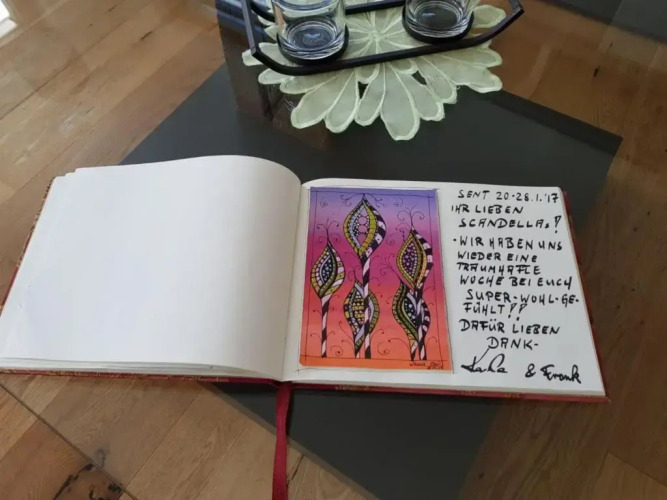 SENT 20.-28.1.'17
IHR LIEBEN
SCANDELLAS!
- WIR HABEN UNS
WIEDER EINE
TRAUMHAFTE
WOCHE BEI EUCH
SUPER-WOHL-GE-
FÜHLT!!
DAFÜR LIEBEN
DANK-
& Frank